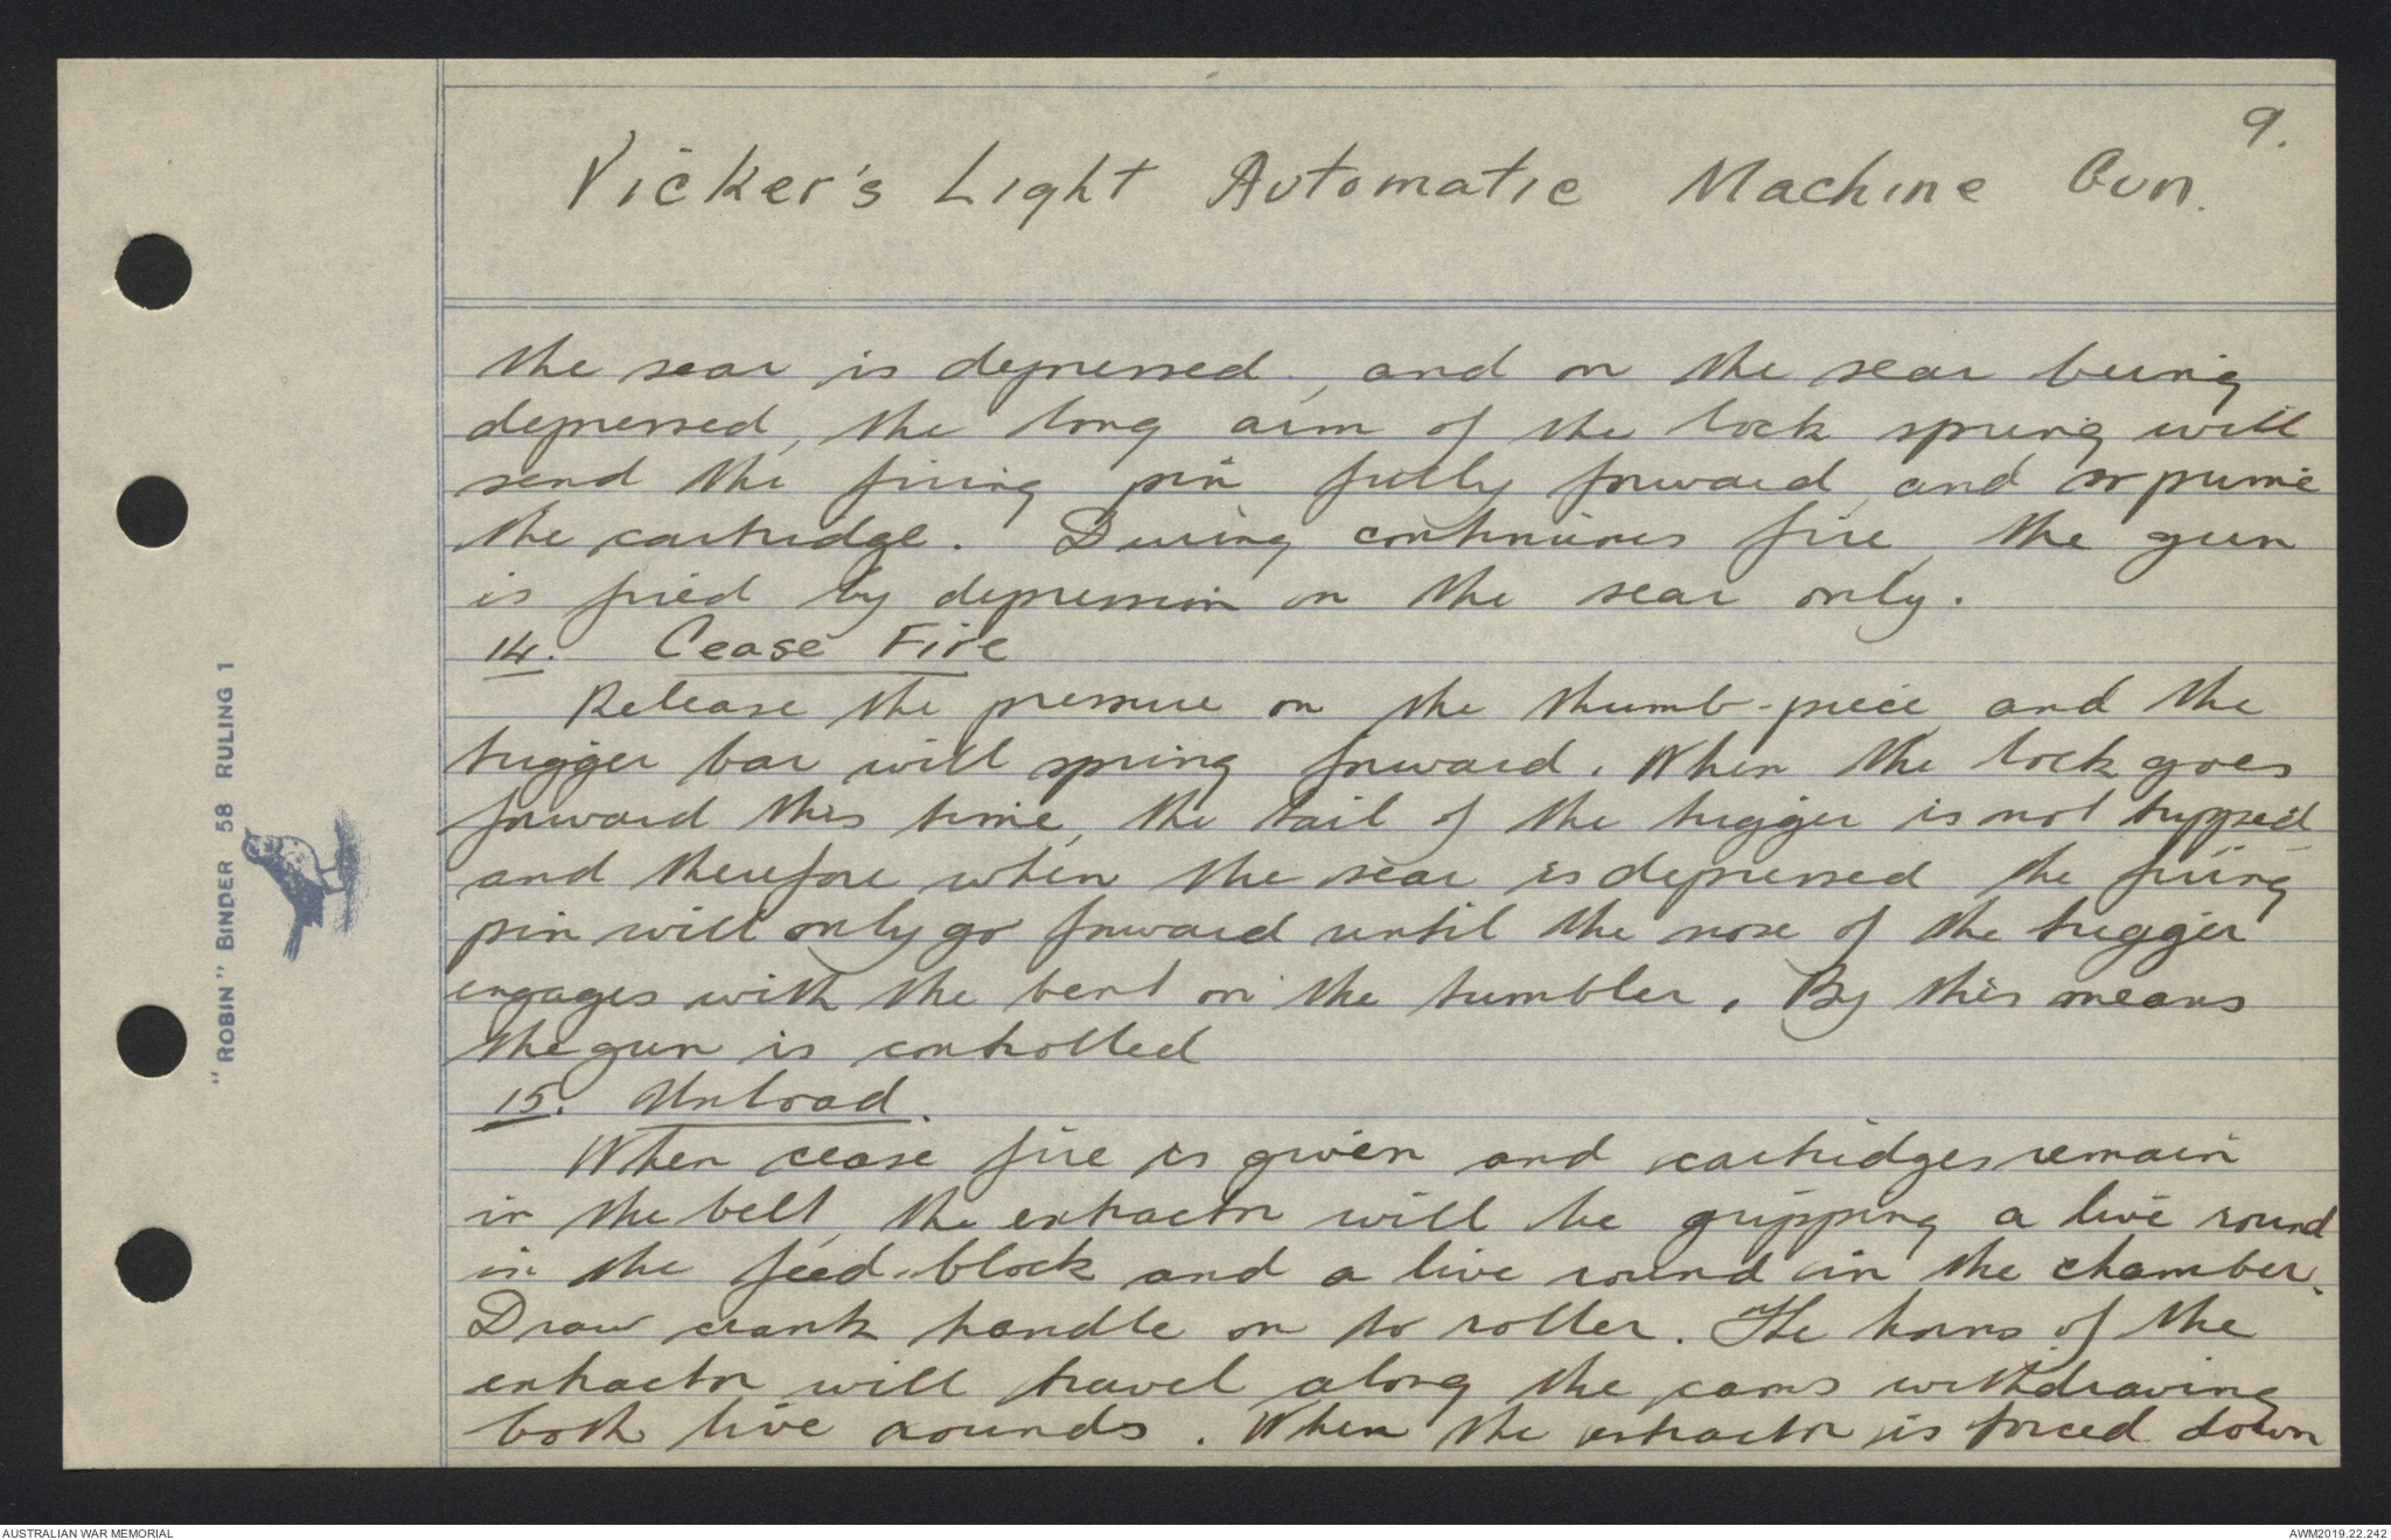 9.
Vicker's Light Automatic Machine Gun.
the sear is depressed, and on the sear being
depressed, the long arm of the lock spring will
send the firing pin fully forward, and so prime
the cartridge. During continuous fire, the gun
is fired by depression on the sear only.
14. Cease Fire
Release the pressure on the thumb-piece and the
trigger bar will spring forward. When the lock goes
forward this time, the tail of the trigger is not tripped
and therefore when the sear is depressed the firing
pin will only go forward until the nose of the trigger
engages with the bent on the tumbler. By this means
the gun is controlled
15. Unload.
When cease fire is given and cartridges remain
in the belt, the extractor will be gripping a live round
in the feed-block and a live round in the chamber.
Draw crank handle on to roller. The horns of the
extractor will travel along the cams withdrawing
both live rounds. When the extractor is forced down
"ROBIN" BINDER 58 RULING 1
AUSTRALIAN WAR MEMORIAL
AWM2019.22.242